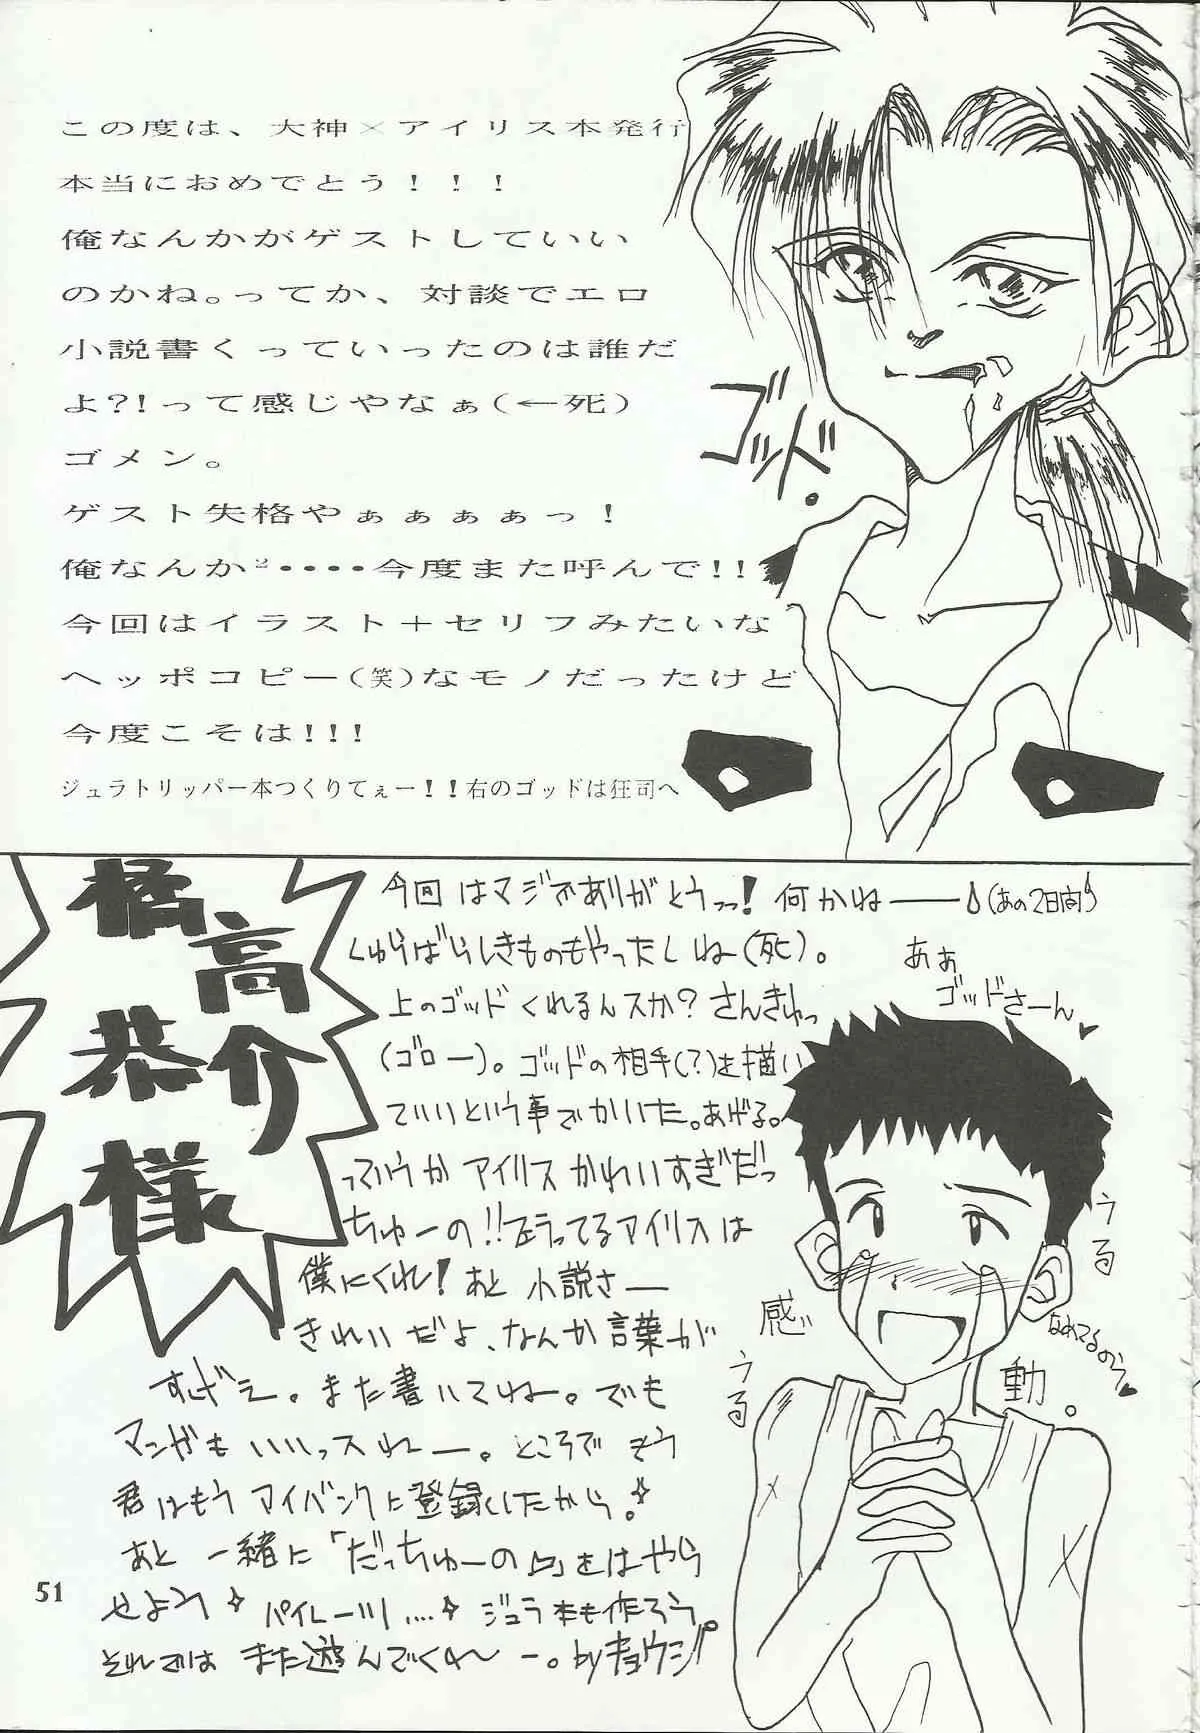 この度は、大神×アイリス本発行
本当におめでとう！！！
俺なんかがゲストしていい
のかね。ってか、対談でエロ
小説書くっていったのは誰だ
よ?!って感じやなぁ(←死)
ゴメン。
ゲスト失格やぁぁぁぁっ！
俺なんか²・・・・今度また呼んで!!
今回はイラスト＋セリフみたいな
ヘッポコピー(笑)なモノだったけど
今度こそは!!!
ジュラトリッパー本つくりてぇー!!右のゴッドは狂司へ
ゴッド。
橘高
恭介
様
今回はマジでありがとうっ! 何かねー (あの2日間)
しゅらばらしきものもやったしねー(死)。
上のゴッドくれるんスか? さんきゅっ
(ゴロー)。ゴッドの相手(?)を描い
ていいという事でかいた。あげる。
っていうかアイリスかわいすぎだっ
ちゅーの!! 売ってるアイリスは
僕にくれ! あと小説さー
きれいだよ、なんか言葉が
すげえ。また書いてねー。でも
マンガもいいっスねー。ところで もう
君はもうアイバンクに登録しいたから。
あと 一緒に「だっちゅーの」をはやら
せよう パイレーツ.... ジュラ本も作ろう。
それでは また遊んでくれ〜ー。byキョウジ
あぁ
ゴッドさーん
うる
感
うる
動。